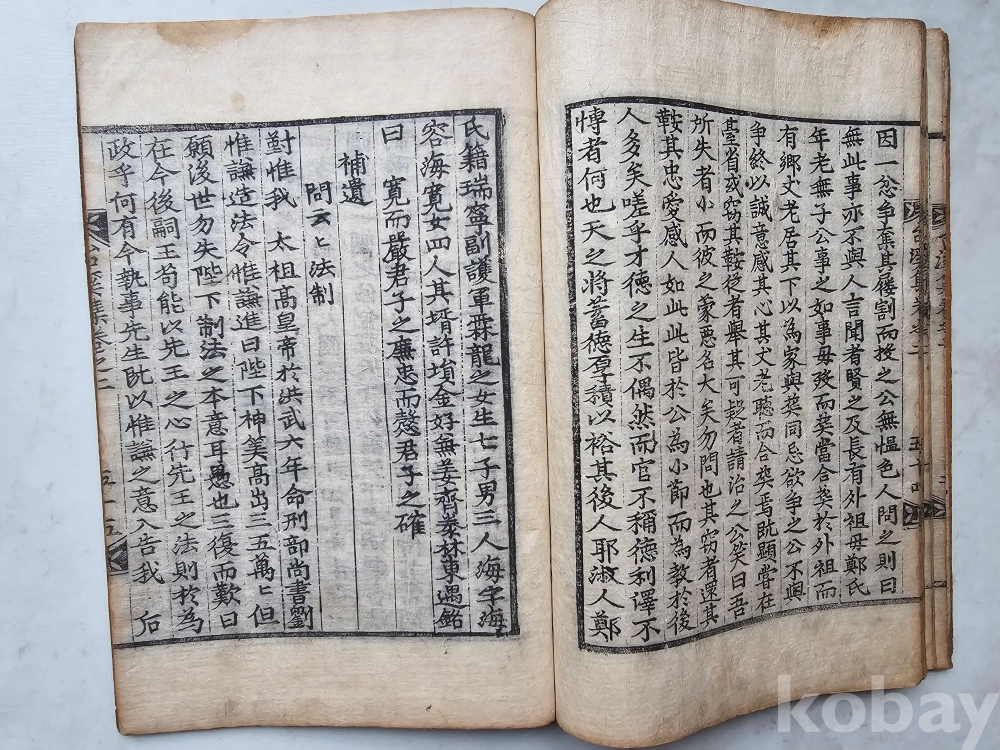 因一忿争集其屐割而投之公無慍色人問之則曰
無此事亦不與人言聞者賢之及長有外祖母鄭氏
年老無子公事之如事母歿而葬當合葬於外祖而
有鄉丈老居其下以為家與葬同忌欲争之公不與
争終以誠意感其心其丈老聽而合葬焉旣顯嘗在
臺省或窃其鞍從者舉其可趂者請治之公笑曰吾
所失者小而彼之蒙惡名大矣勿問也其窃者還其
鞍其忠愛感人如此此皆於公為小節而為教於後
人多矣嗟乎才德之生不偶然而官不稱德利澤不
愽者何也天之將蓄德厚積以裕其後人耶淑人鄭
氏籍瑞寧副護軍霖龍之女生七子男三人海宇海
容海寬女四人其壻許塤金好無姜齊泰林東遇銘
曰 寬而嚴君子之廉忠而愨君子之確
補遺
問云〻法制
對惟我 太祖高皇帝於洪武六年命刑部尚書劉
惟謙造法令惟謙進曰陛下神美高出三五萬〻但
願後世勿失陛下制法之本意耳愚也三復而歎曰
在今後嗣王苟能以先王之心行先王之法則於為
政乎何有今執事先生旣以惟謙之意入告我 后
五十五
kobay